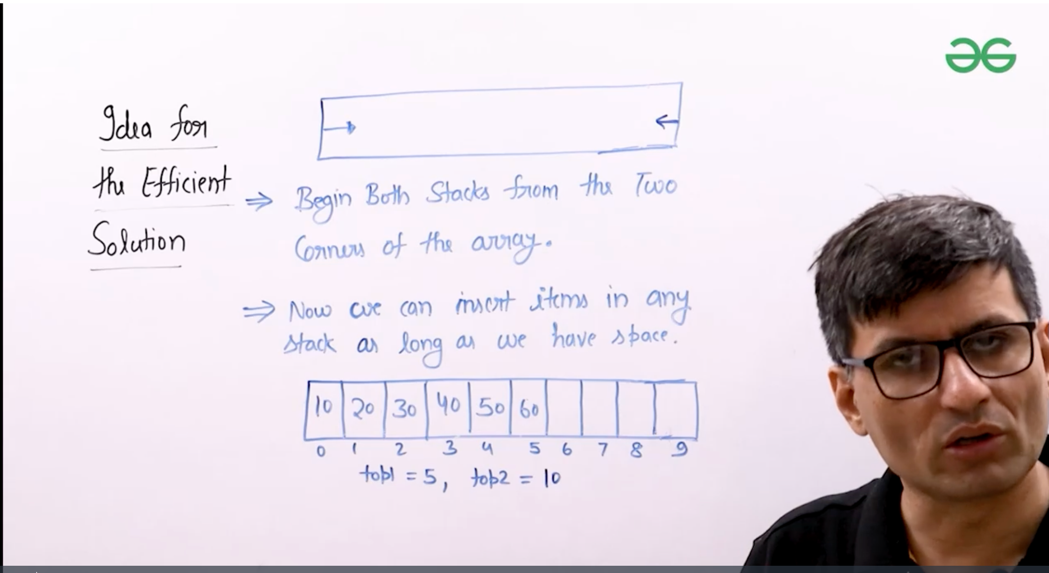 Idea for
the Efficient
Solution
⇒ Begin Both Stacks from the Two
Corners of the array.
⇒ Now we can insert items in any
stack as long as we have space.
10 20 30 40 50 60
0 1 2 3 4 5 6 7 8 9
top1 = 5, top2 = 10